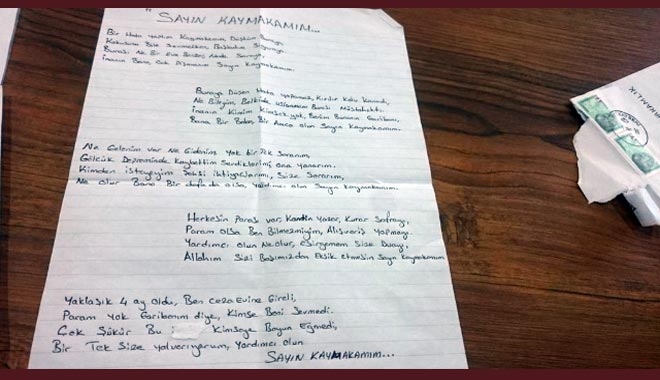 " SAYIN KAYMAKAMIM...
Bir Hata yaptım Kaymakamım Düştüm Buraya,
Kokusuna Bile
Burası Ne Bir Eve Benzer, Nede Saraya,
inanın Bana, Çok Pişmanım Sayın Kaymakamım.
Buraya Düşen Hata yapamaz, Kırılır Kolu Kanadı,
Ne Bileyim, Belkide Bunu
inanın Kimim Kimsek yok, Benim Buranın Garibanı,
Bana Bir Baba, Bir Amca olun Sayın Kaymakamım.
Ne Gelenim var Ne Gidenim Yok bir Tek Soranım,
Gölcük Depreminde Kaybettim Sevdiklerimi, ona yanarım.
Kimden isteyeyim ihtiyaçlarımı, Size Sorarım,
Ne olur Bana Bir defa da olsa, Yardımcı olun Sayın Kaymakamım.
Herkesin Parası var, Kantin Yazar, Kurar Sofrayı,
Param olsa Ben Bilmezmiyim, Alışveriş Yapmayı,
Yardımcı olun Ne olur, esirgemem Size Duayı,
Allahım Sizi Başımızdan Eksik etmesin Sayın Kaymakamım
Yaklaşık 4 ay oldu, Ben Ceza Evine Gireli,
Param Yok Garibanım diye, Kimse Beni Sevmedi.
Çok Şükür Bu Kimseye Boyun Eğmedi,
Bir Tek Size yalvarıyorum, Yardımcı olun
SAYIN KAYMAKAMIM...